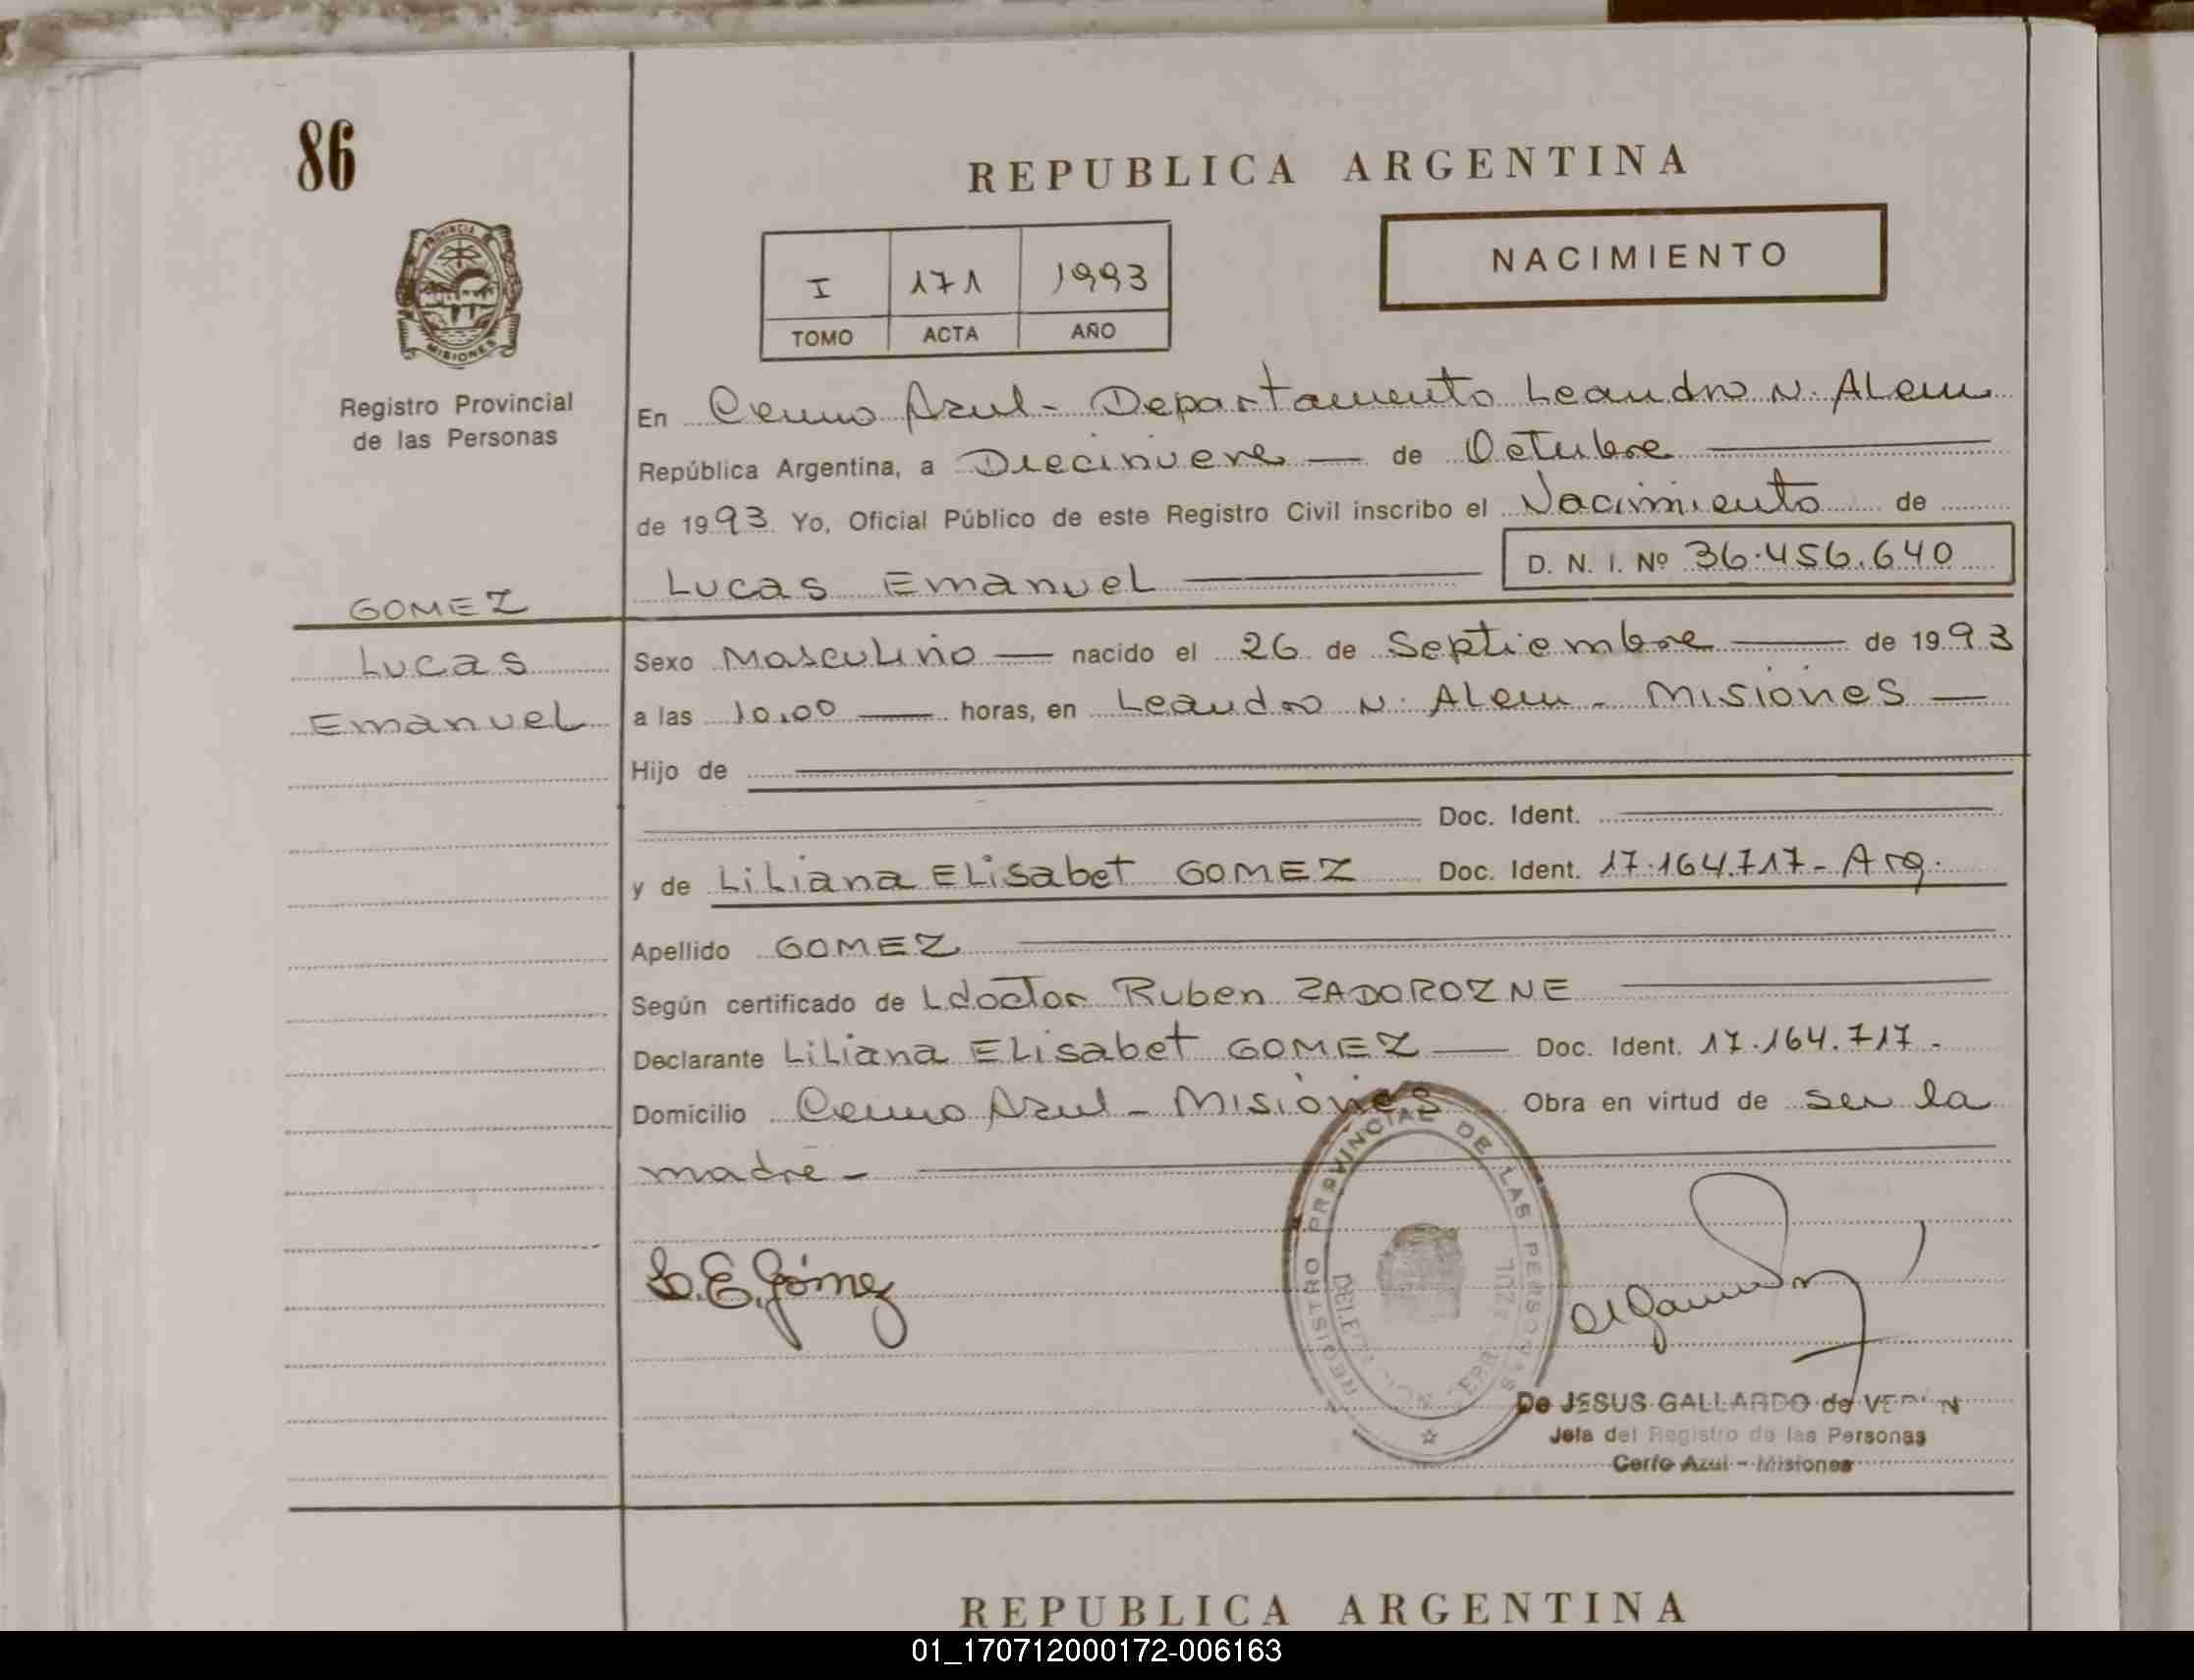 86
REPUBLICA ARGENTINA
PROVINCIA DE
MISIONES
Registro Provincial
de las Personas
I 171 1993
TOMO ACTA AÑO
NACIMIENTO
En Cerro Azul - Departamento Leandro N. Alem
República Argentina, a Diecinueve — de Octubre
de 1993 Yo, Oficial Público de este Registro Civil inscribo el Nacimiento de
Lucas Emanuel D. N. I. Nº 36.456.640
GOMEZ
Lucas
Emanuel
Sexo Masculino — nacido el 26 de Septiembre — de 1993
a las 10,00 — horas, en Leandro N. Alem - Misiones —
Hijo de
Doc. Ident.
y de Liliana Elisabet GOMEZ Doc. Ident. 17.164.717 - Arg.
Apellido GOMEZ
Según certificado de L doctor Ruben ZADOROZNE
Declarante Liliana Elisabet GOMEZ — Doc. Ident. 17.164.717 -
Domicilio Cerro Azul - Misiones Obra en virtud de ser la
madre -
REGISTRO PROVINCIAL DE LAS PERSONAS
L.E. Gómez
De JESUS GALLARDO de
Jefa del Registro de las Personas
Cerro Azul - Misiones
REPUBLICA ARGENTINA
01_170712000172-006163